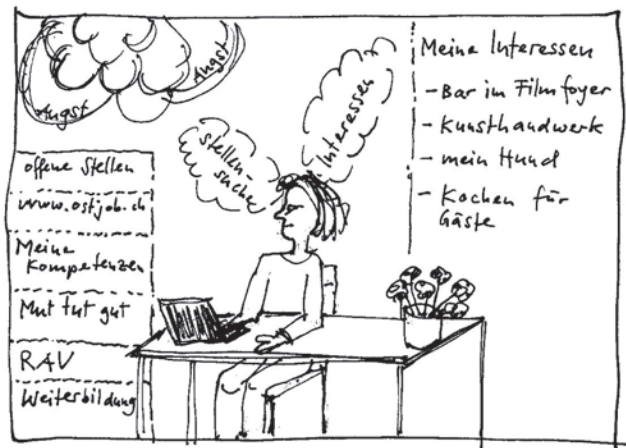 Angst
Angst
offene Stellen
www.ostjob.ch
Meine
Kompetenzen
Mut tut gut
RAV
Weiterbildung
Stellen-
suche
Interessen
Meine Interessen
- Bar im Filmfoyer
- Kunsthandwerk
- mein Hund
- Kochen für
Gäste